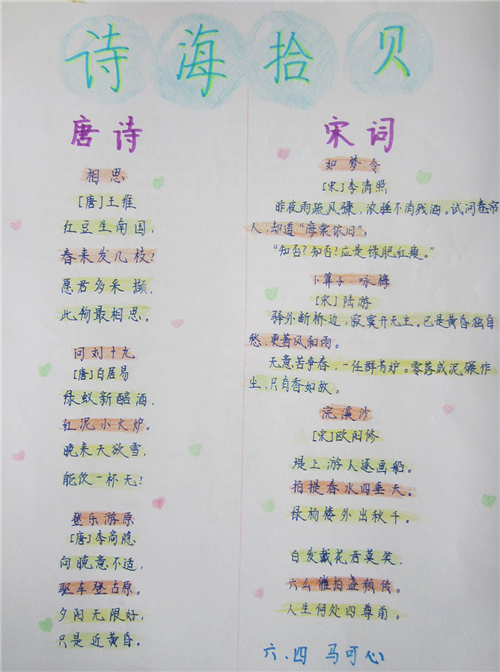 诗海拾贝
唐诗
相思
[唐]王维
红豆生南国,
春来发几枝?
愿君多采撷,
此物最相思。
问刘十九
[唐]白居易
绿蚁新醅酒,
红泥小火炉。
晚来天欲雪,
能饮一杯无?
登乐游原
[唐]李商隐
向晚意不适,
驱车登古原。
夕阳无限好,
只是近黄昏。
宋词
如梦令
[宋]李清照
昨夜雨疏风骤,浓睡不消残酒。试问卷帘
人,却道“海棠依旧”。
“知否?知否?应是绿肥红瘦。”
卜算子·咏梅
[宋]陆游
驿外断桥边,寂寞开无主。已是黄昏独自
愁,更著风和雨。
无意苦争春,一任群芳妒。零落成泥碾作
尘,只有香如故。
浣溪沙
[宋]欧阳修
堤上游人逐画船,
拍堤春水四垂天。
绿杨楼外出秋千。
白发戴花君莫笑,
六幺催拍盏频传。
人生何处似尊前。
六.四 马可心